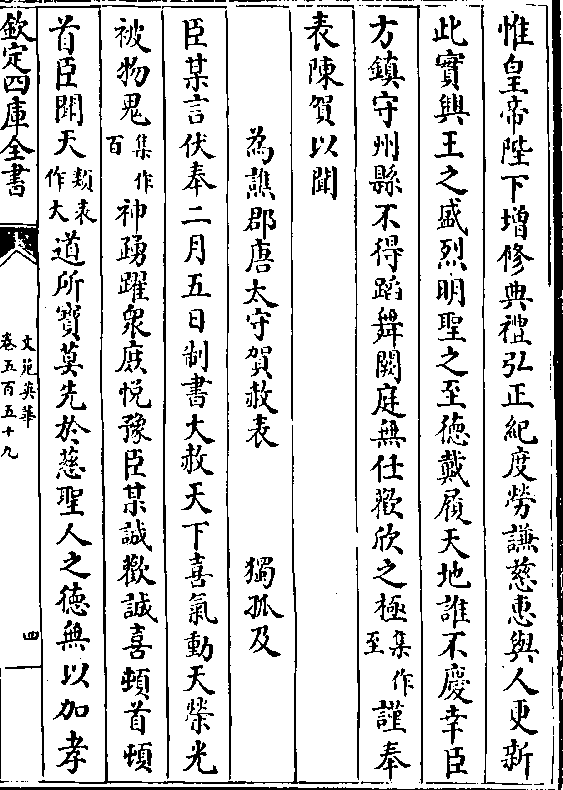 惟皇帝陛下增修典禮弘正紀度勞謙慈惠與人更新
此實興王之盛烈明聖之至德戴履天地誰不慶幸臣
方鎮守州縣不得蹈舞闕庭無任歡欣之極集作至謹奉
表陳賀以聞
為譙郡唐太守賀赦表 獨孤及
臣某言伏奉二月五日制書大赦天下喜氣動天榮光
被物鬼集作百神踴躍衆庶悅豫臣某誠歡誠喜頓首頓
首臣聞天類表作大道所寶莫先於慈聖人之德無以加孝
欽定四庫全書
文苑英華
卷五百五十九
四